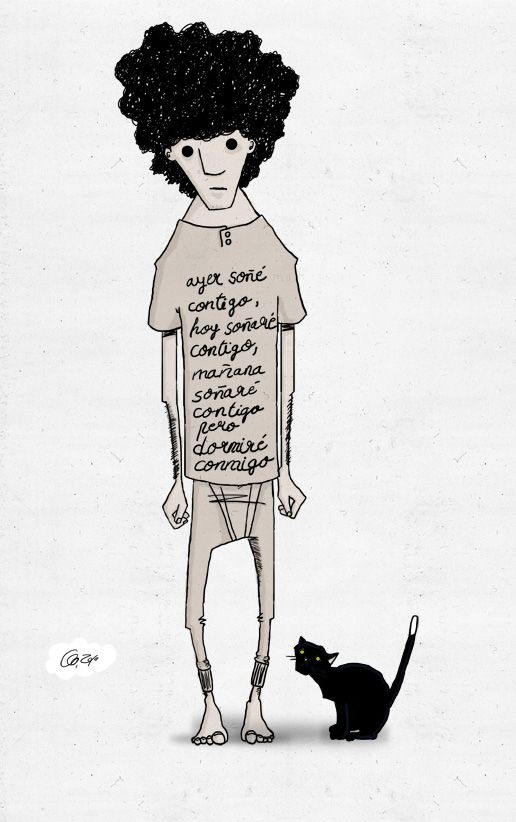 ayer soñé
contigo,
hoy soñaré
contigo,
mañana
soñaré
contigo
pero
dormiré
conmigo